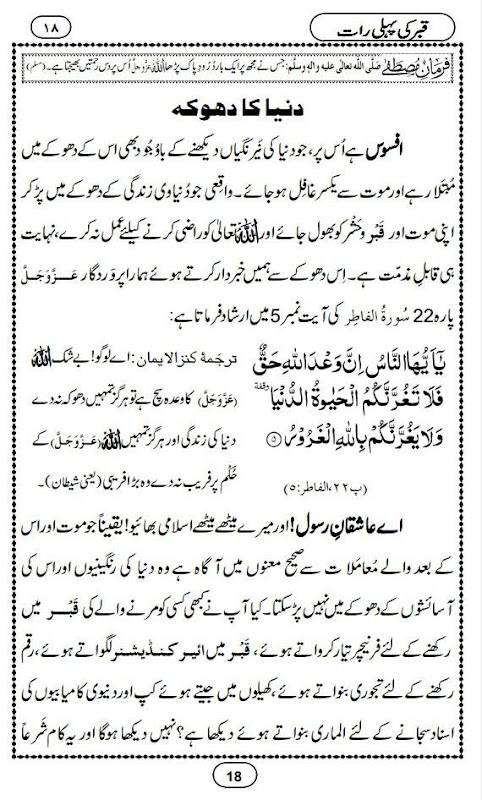 قبر کی پہلی رات
۱۸
فرمانِ مصطفےٰ صلَّی اللہ تعالٰی علیہ واٰلہٖ وسلَّم: جس نے مجھ پر ایک بار دُرُودِ پاک پڑھا اللہ عَزَّوَجَلَّ اُس پر دس رحمتیں بھیجتا ہے۔ (مسلم)
دنیا کا دھوکہ
افسوس ہے اُس پر، جو دنیا کی نَیرنگیاں دیکھنے کے باوُجُود بھی اس کے دھوکے میں
مُبتَلا رہے اور موت سے یکسر غافِل ہو جائے۔ واقِعی جو دُنیاوی زندگی کے دھوکے میں پڑ کر
اپنی موت اور قَبْر و حَشْر کو بھول جائے اور اللہ تعالیٰ کو راضی کرنے کیلئے عمل نہ کرے، نہایت
ہی قابلِ مذمّت ہے۔ اِس دھوکے سے ہمیں خبردار کرتے ہوئے ہمارا پروردگار عَزَّوَجَلَّ
پارہ 22 سُورۃُ الفاطِر کی آیت نمبر 5 میں ارشاد فرماتا ہے:
یٰۤاَیُّهَا النَّاسُ اِنَّ وَعْدَ اللّٰهِ حَقٌّ
فَلَا تَغُرَّنَّكُمُ الْحَیٰوةُ الدُّنْیَا ٙ
وَلَا یَغُرَّنَّكُمْ بِاللّٰهِ الْغَرُوْرُ ﴿۵﴾
(پ۲۲، الفاطر:۵)
ترجمۂ کنزالایمان: اے لوگو! بے شک اللہ
(عَزَّوَجَلَّ) کا وعدہ سچ ہے تو ہرگز تمہیں دھوکہ نہ دے
دنیا کی زندگی اور ہرگز تمہیں اللہ (عَزَّوَجَلَّ) کے
حُلْم پر فریب نہ دے وہ بڑا فریبی (یعنی شیطان)۔
اے عاشقانِ رسول! اور میرے میٹھے میٹھے اسلامی بھائیو! یقیناً جو موت اور اس
کے بعد والے مُعامَلات سے صحیح معنوں میں آگاہ ہے وہ دنیا کی رنگینیوں اور اس کی
آسائشوں کے دھوکے میں نہیں پڑ سکتا۔ کیا آپ نے کبھی کسی کو مرنے والے کی قَبْر میں
رکھنے کے لئے فرنیچر تیار کرواتے ہوئے، قَبْر میں ائیر کنڈیشنر لگواتے ہوئے، رقم
رکھنے کے لئے تجوری بنواتے ہوئے، کھیلوں میں جیتے ہوئے کپ اور دنیوی کامیابیوں کی
اسناد سجانے کے لئے الماری بنواتے ہوئے دیکھا ہے؟ نہیں دیکھا ہوگا اور یہ کام شَرعاً
18